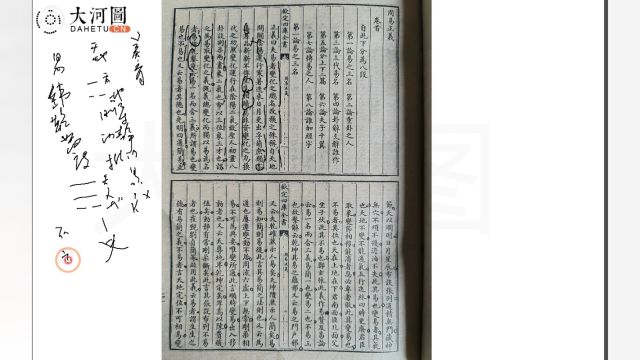 大河圖
DAHETU.CN
易緯乾鑿度
欽定四庫全書
周易正義
卷首
自此下分為八段
第一論易之三名 第二論重卦之人
第三論三代易名 第四論卦辭爻辭誰作
第五論分上下二篇 第六論夫子十翼
第七論傳易之人 第八論誰加經字
第一論易之三名
正義曰夫易者變化之總名改換之殊稱自天地
開闢陰陽運行寒暑迭來日月更出孚萌庶類亭
毒羣品新新不停生生相續莫非資變化之力換
代之功然變化運行在陰陽二氣故聖人初畫八
卦設剛柔兩畫象二氣也布以三位象三才也謂
之為易取變化之義既義總變化而獨以易為名
者易緯乾鑿度云易一名而含三義所謂易也變
易也不易也又云易者其德也光明四通簡易立
欽定四庫全書
節天以爛明日月星辰布設張列通精無門藏神
無穴不煩不擾澹泊不失此其易也變易者其氣
也天地不變不能通氣五行迭終四時更廢君臣
取象變節相移能消者息必專者敗此其變易也
不易者其位也天在上地在下君南面臣北面父
坐子伏此其不易也鄭玄依此義作易贊及易論
云易一名而含三義易簡一也變易二也不易三
也故繫辭云乾坤其易之蘊邪又云易之門戶邪
又云夫乾確然示人易矣夫坤隤然示人簡矣易
則易知簡則易從此言其易簡之法則也又云為
道也屢遷變動不居周流六虛上下無常剛柔相
易不可為典要唯變所適此言順時變易出入移
動者也又云天尊地卑乾坤定矣卑高以陳貴賤
位矣動靜有常剛柔斷矣此言其張設布列不易
者也崔覲劉貞簡等並用此義云易者謂生生之
德有易簡之義不易者言天地定位不可相易變